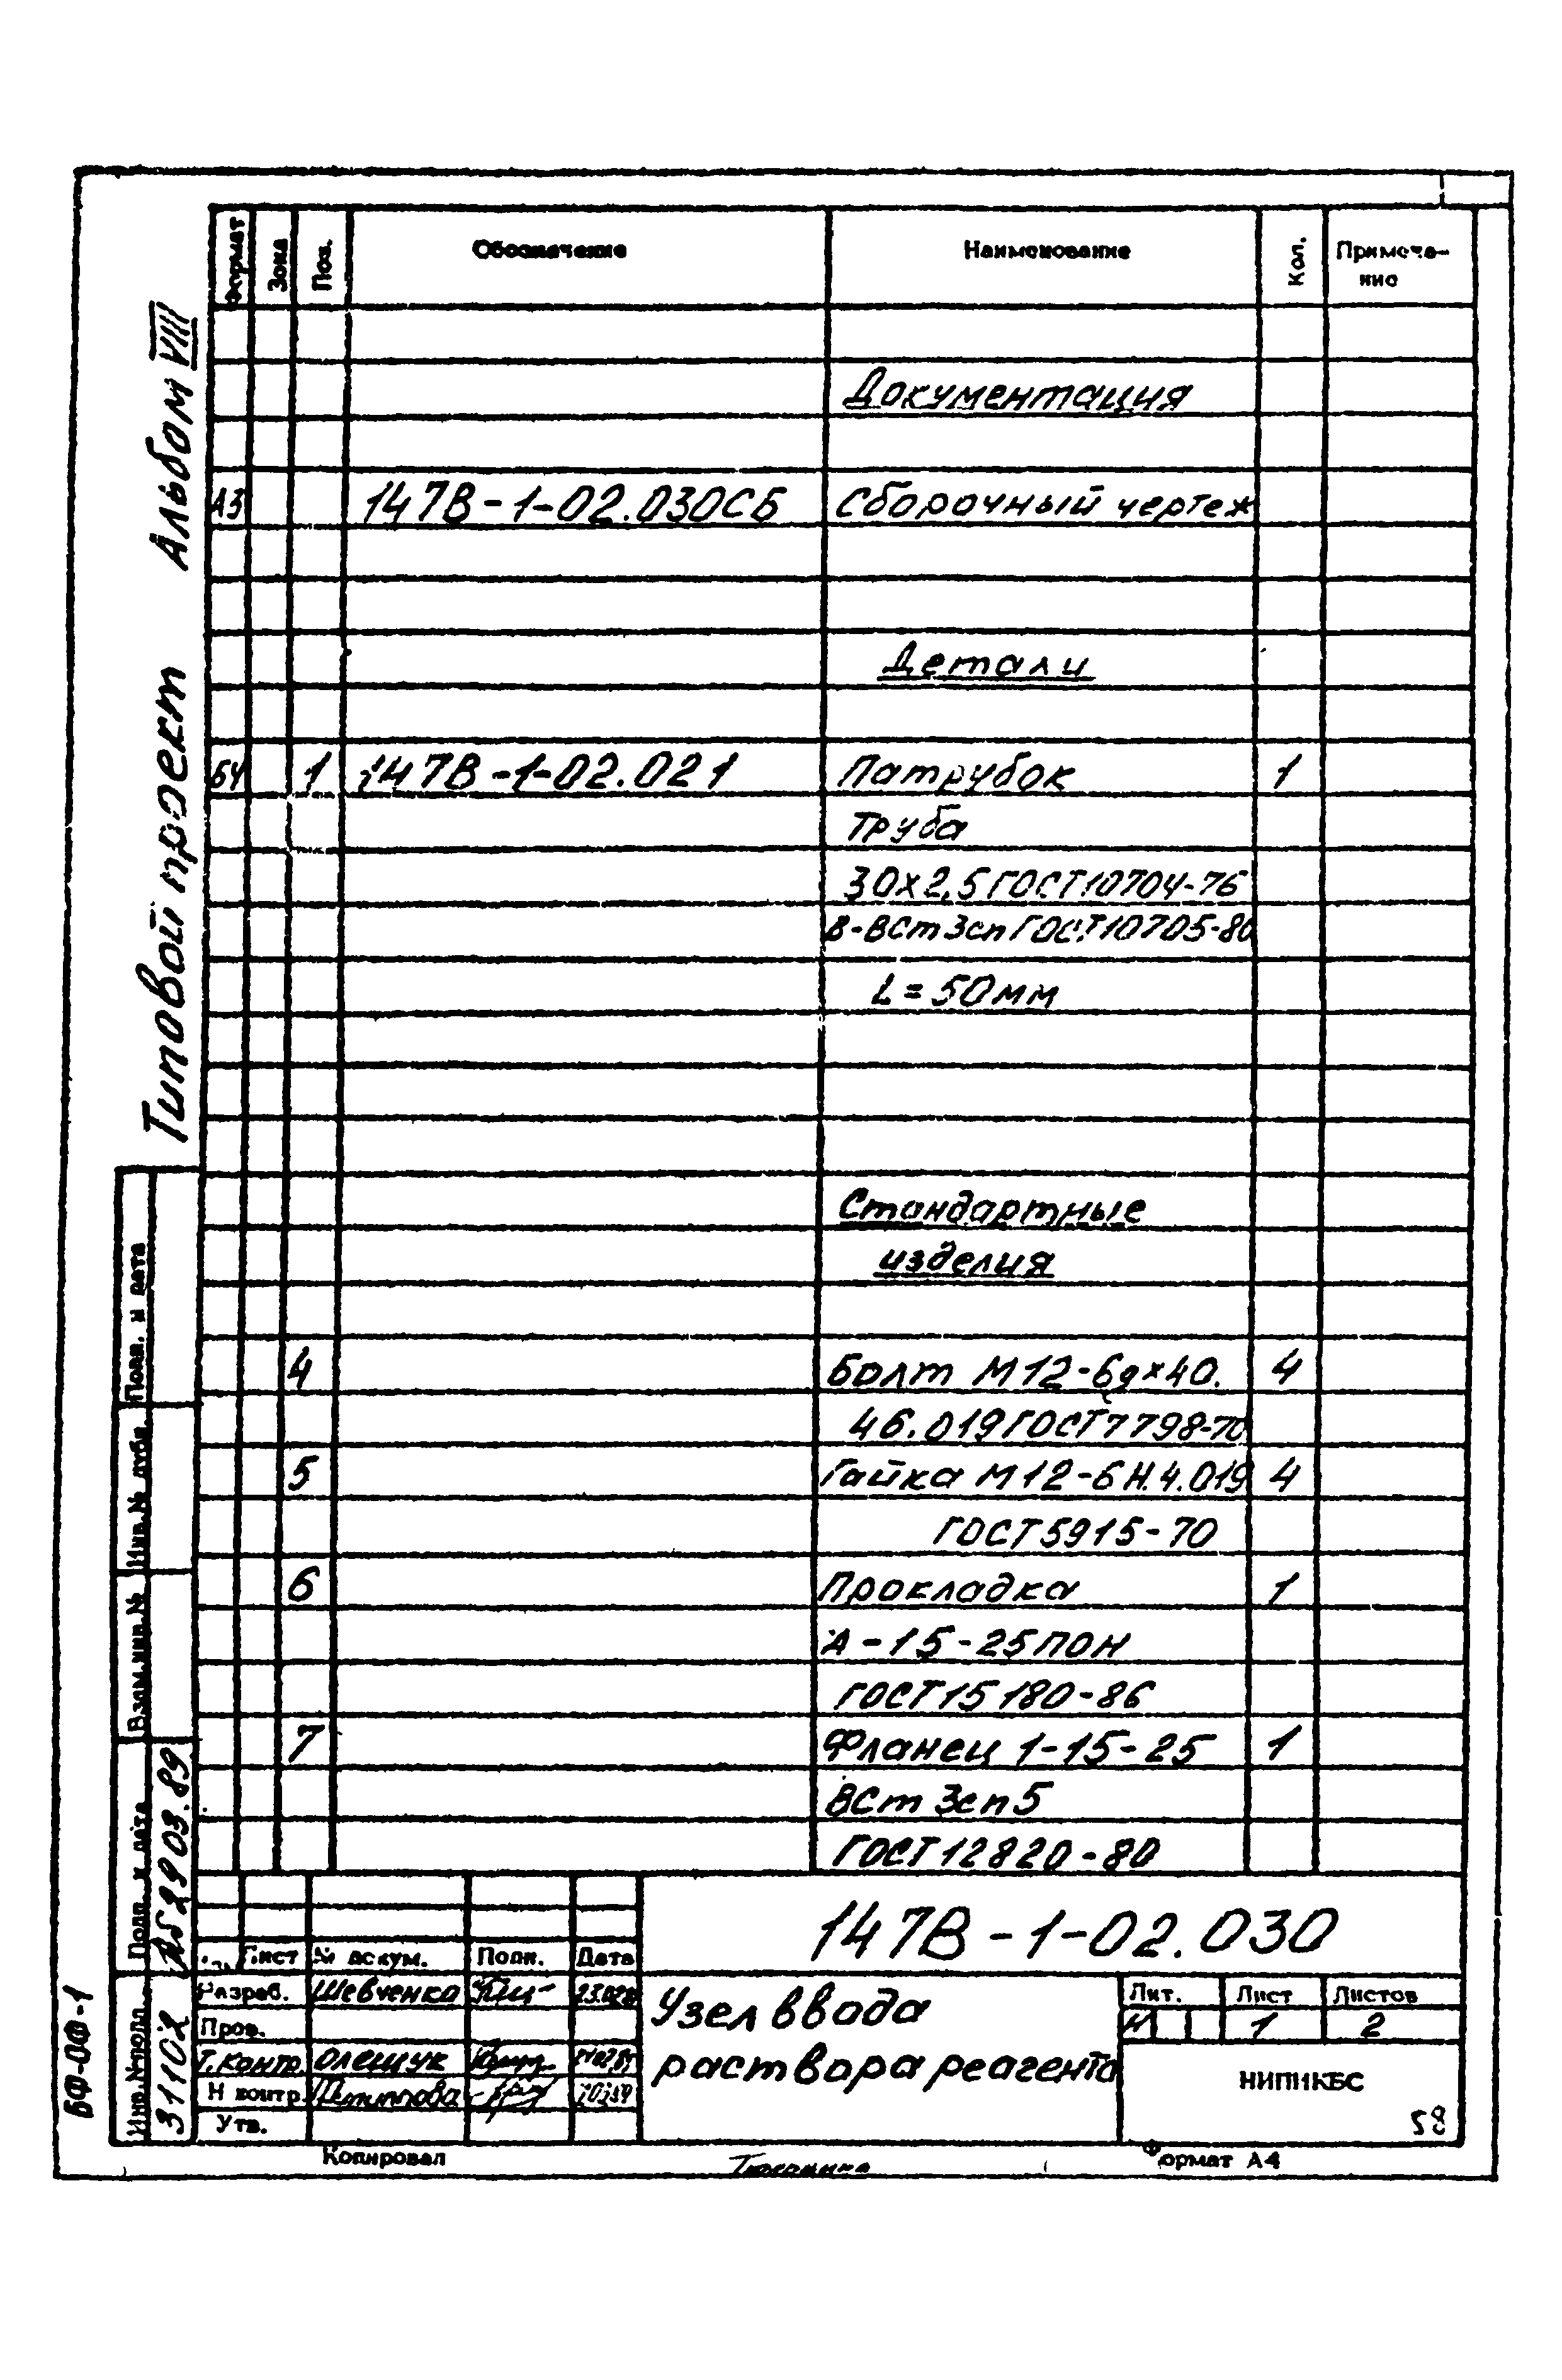 Типовой проект Альбом VIII
Формат Зона Поз. Обозначение Наименование Кол. Примеча-
ние
Документация
А3 147В-1-02.030СБ Сборочный чертеж
Детали
БЧ 1 147В-1-02.021 Патрубок 1
Труба
30х2,5 ГОСТ 10704-76
В-ВСт3сп ГОСТ 10705-80
L=50мм
Стандартные
изделия
4 Болт М12-6gх40. 4
46.019 ГОСТ 7798-70
5 Гайка М12-6Н.4.019 4
ГОСТ 5915-70
6 Прокладка 1
А-15-25 ПОН
ГОСТ 15180-86
7 Фланец 1-15-25 1
ВСт3сп5
ГОСТ 12820-80
Подп. и дата
Инв.№ дубл.
Взам.инв.№
Подп. и дата 29.03.89
Инв.№ подл. 31102
БФ-ОФ-1
147В-1-02.030
Лист № докум. Подп. Дата
Разраб. Шевченко
Пров.
Т.контр. Олещук
Н контр.
Утв.
Узел ввода
раствора реагента
Лит. Лист Листов
И 1 2
НИПИКБС
58
Копировал Формат А4